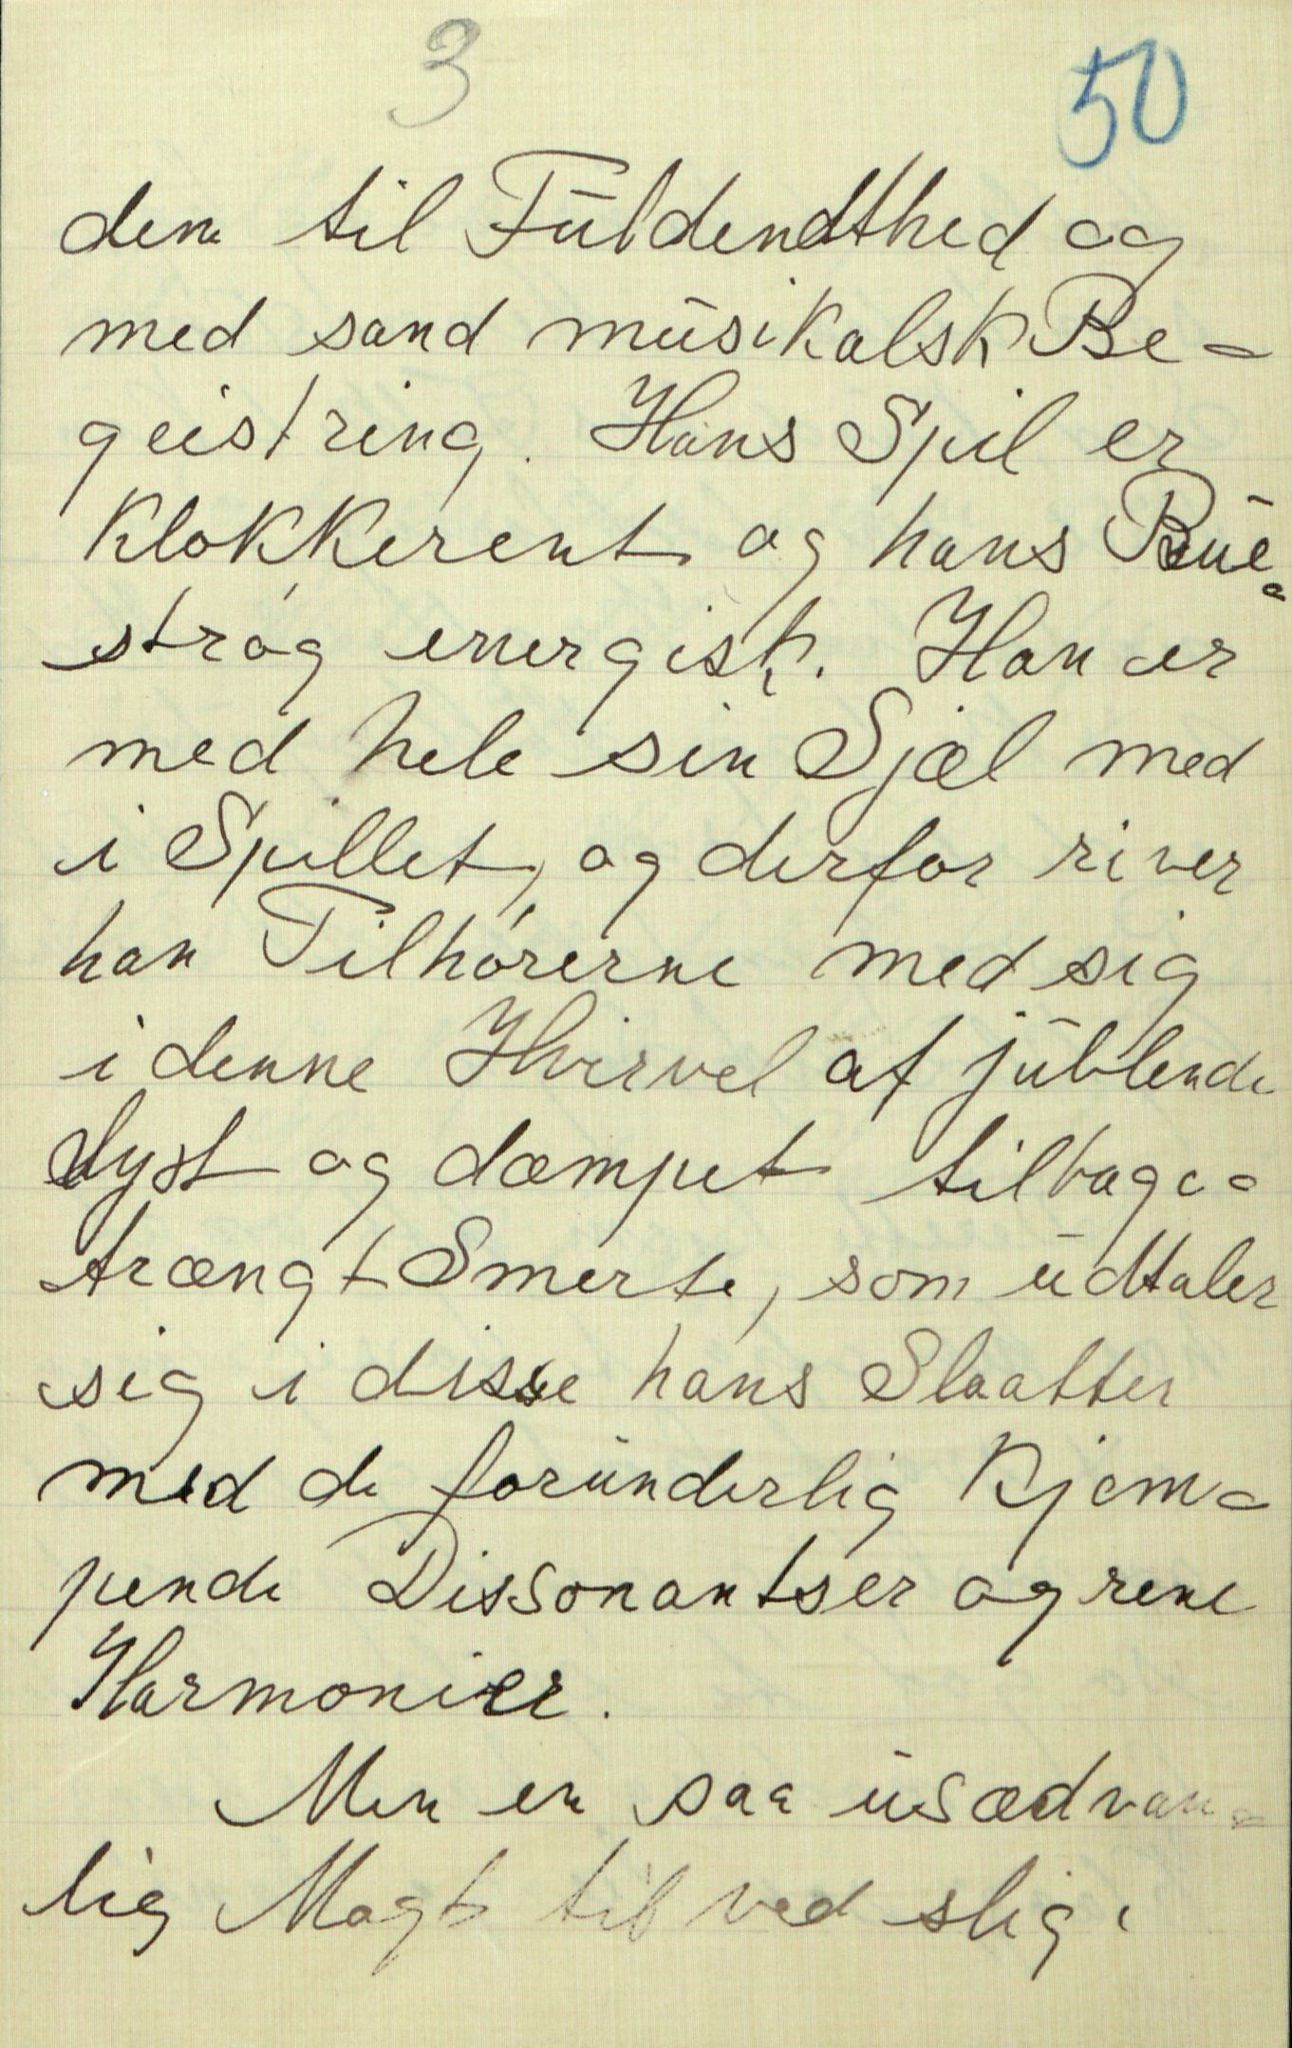 3 50
den til Fuldendthed og
med sand musikalsk Be-
geistring. Hans Spil er
klokkerent og hans Bue-
strøg energisk. Han er
med hele sin Sjæl med
i Spillet, og derfor river
han Tilhørerne med sig
i denne Hvirvel af jublende
Lyst og dæmpet tilbage-
trængt Smerte, som udtaler
sig i disse hans Slaatter
med de forunderlig kjæm-
pende Dissonantser og rene
Harmonier.
Men en saa usædvan-
lig Magt til ved slige